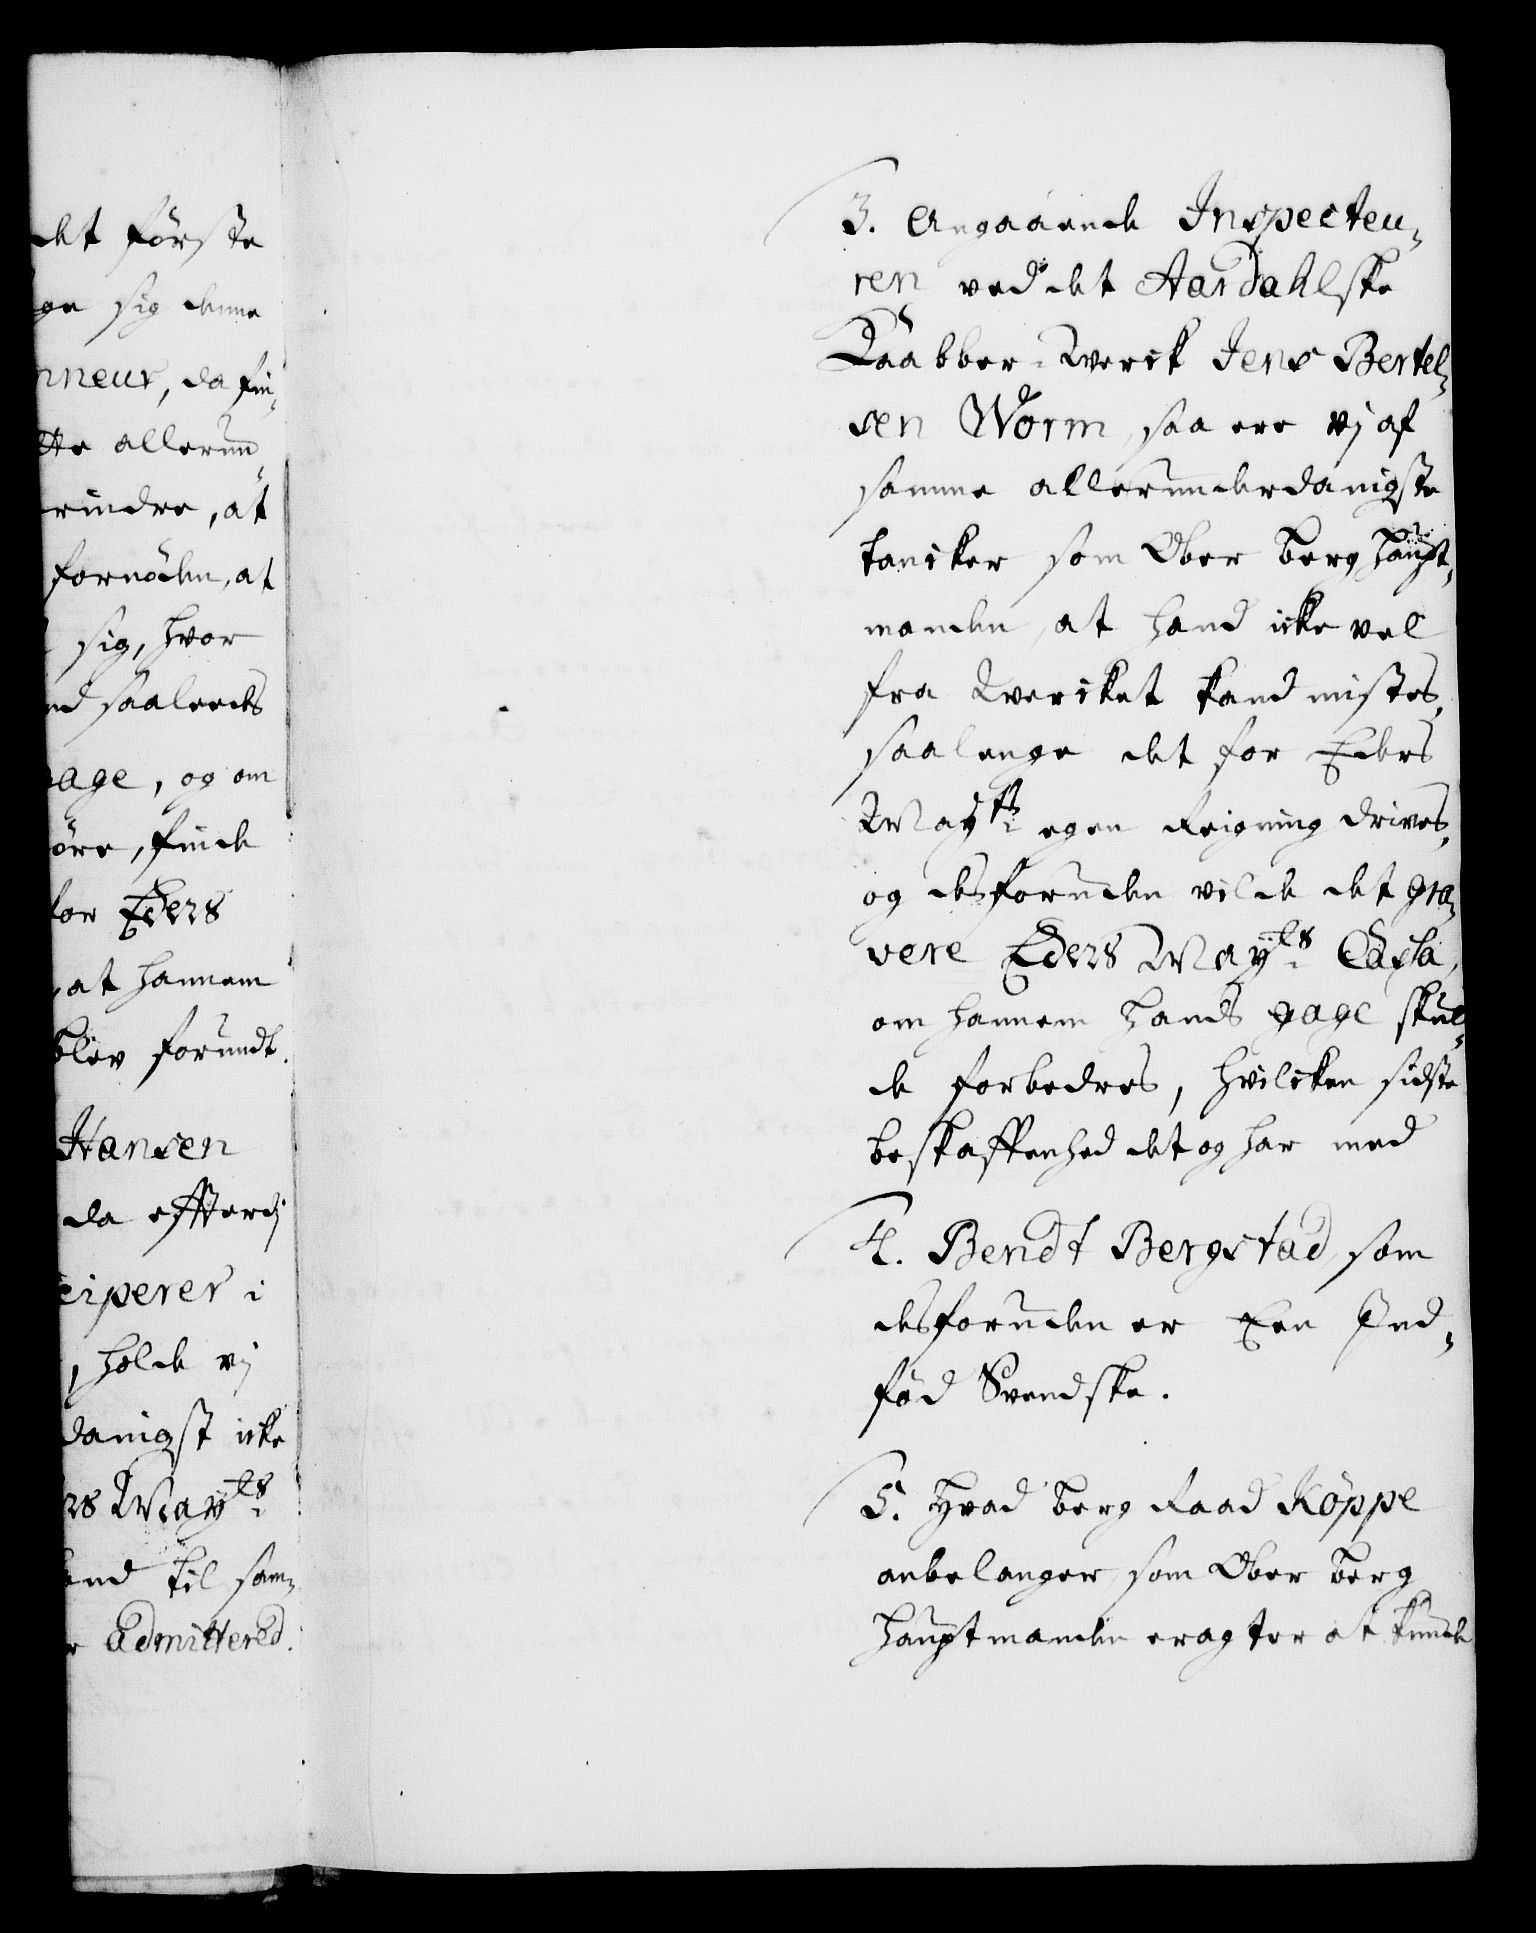 det förste
ge sig denne
nneur, da fin,
tte allerun,
rindre, at
fornöden, at
sig, hvor
nd saaleedes
age, og om
öre, finde
for Eders
at hannem
blev forundt.
Hansen
da effterdj
ciperer i
, holde vj
danigst icke
rs Mayts
end til sam,
r admittered.
3. Angaaende Inspecteu,
ren ved det Aardahlske
Kaabber-Werck Jens Bertel,
sen Worm, saa ere vj af
samme allerunderdanigste
tancker som Ober berg haupt,
manden, at hand icke vel
fra Wercket kand mistes,
saalenge det for Eders
Mayts egen Reigning drives,
og desforuden vilde det gra,
vere Eders Mayts Cassa,
om hannem hands gage skul,
de forbedres, hvilcken sidste
beskaffenhed det og har med
4. Bendt Bergstad, som
desforuden er Een Ind,
fød Svendske.
5. Hvad berg Raad Köppe
anbelanger, som Ober berg
hauptmanden eragter at kunde